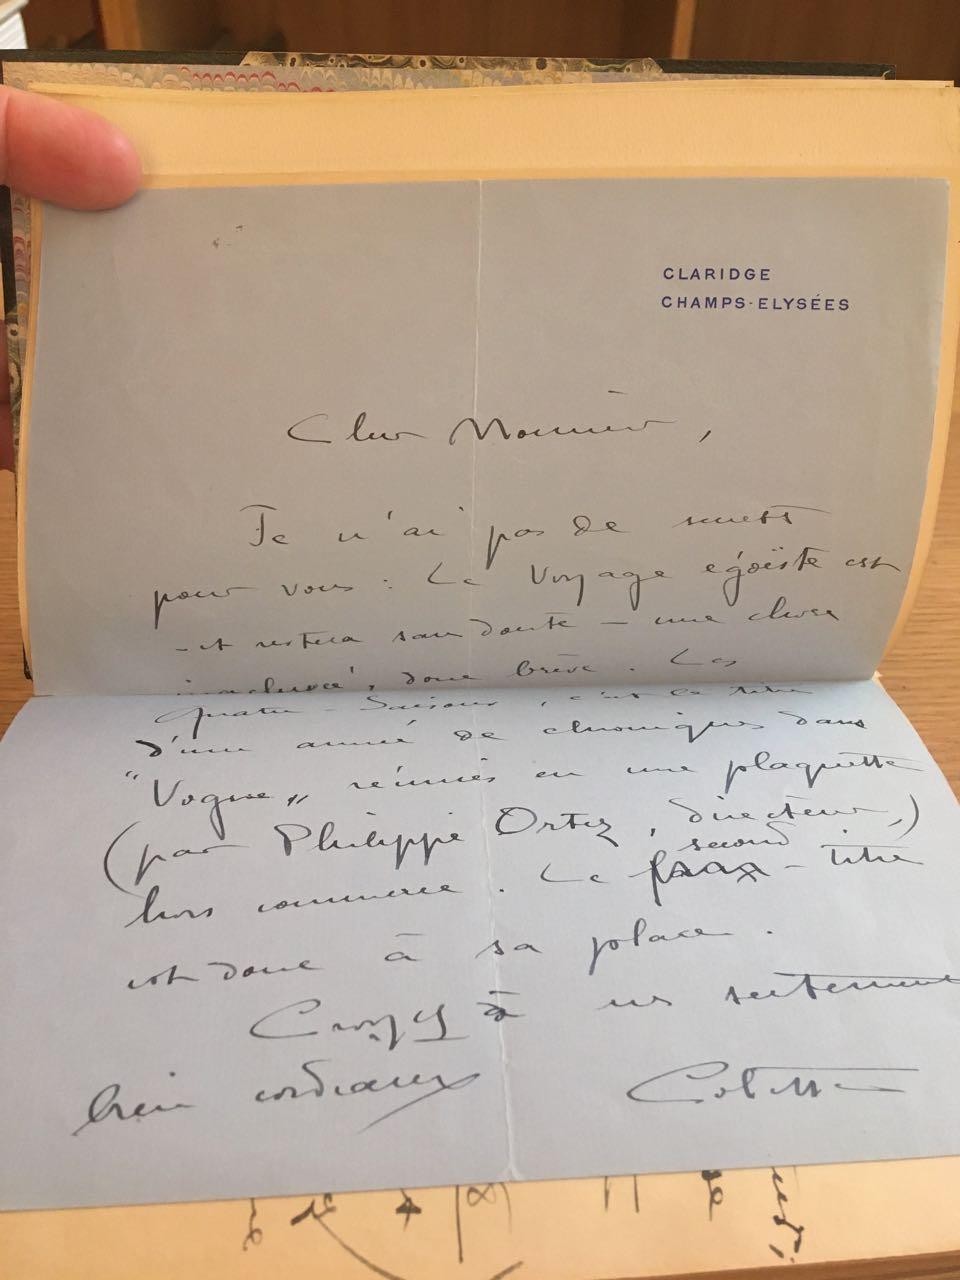 CLARIDGE
CHAMPS-ELYSÉES
Cher Monsieur,
Je n'ai pas de secrets
pour vous : Le Voyage égoïste est
- et restera sans doute - une chose
inachevée, donc brève. Les
Quatre-Saisons, c'est le titre
d'une année de chroniques dans
"Vogue", réunies en une plaquette
(par Philippe Ortiz, directeur,)
hors commerce. Le second faux-titre
est donc à sa place.
Croyez à mes sentiments
bien cordiaux
Colette